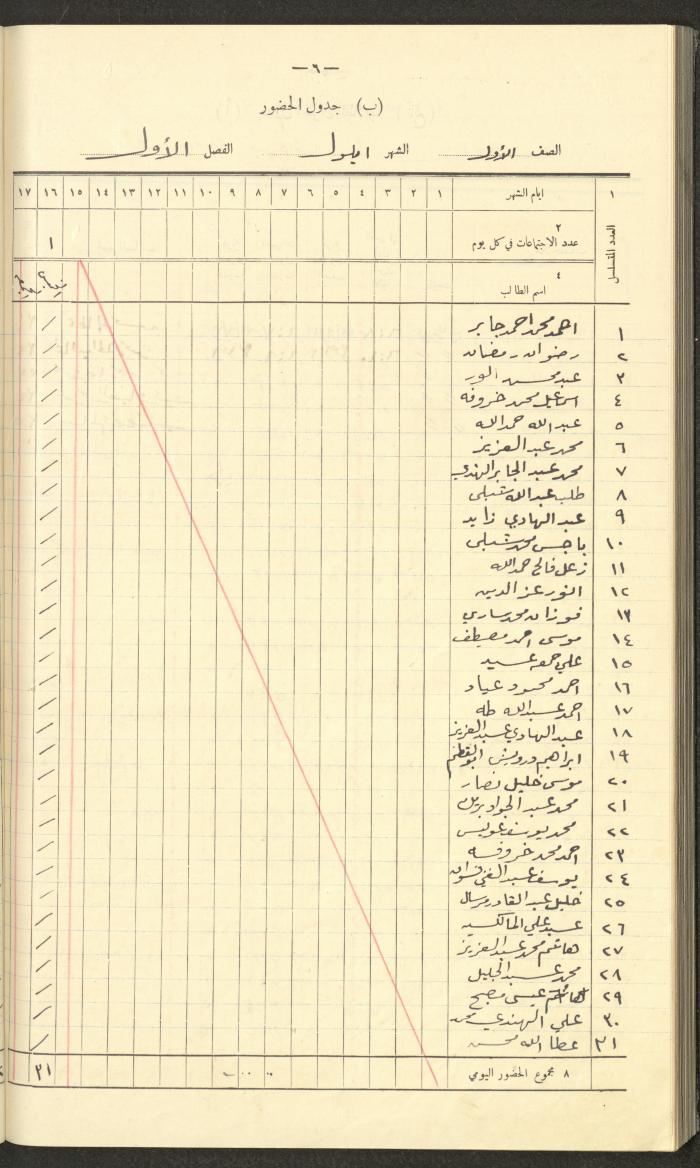 — ٦ —
(ب) جدول الحضور
الصف الأول الشهر ايلول الفصل الأول
١ ايام الشهر ١ ٢ ٣ ٤ ٥ ٦ ٧ ٨ ٩ ١٠ ١١ ١٢ ١٣ ١٤ ١٥ ١٦ ١٧
العدد المتسلسل
٢
عدد الاجتماعات في كل يوم ١
٤
اسم الطالب
١ احمد محمد احمد جابر
٢ رضوان رمضان
٣ عبد محمد
٤ اسماعيل محمد خروفه
٥ عبد الله حمد الله
٦ محمد عبد العزيز
٧ محمد عبد الجابر الهندي
٨ طلب عبد الله شبلي
٩ عبد الهادي زايد
١٠ باجس محمد شبلي
١١ زعل فالح حمد الله
١٢ انور عز الدين
١٣ فوزان محمد ساري
١٤ موسى احمد مصيطف
١٥ علي جمعه عبيد
١٦ احمد محمود عياد
١٧ احمد عبد الله طه
١٨ عبد الهادي عبد العزيز
١٩ ابراهيم درويش
٢٠ موسى خليل نصار
٢١ محمد عبد الجواد
٢٢ محمد يوسف عويس
٢٣ احمد محمد خروفه
٢٤ يوسف عبد الغني
٢٥ خليل عبد القادر
٢٦ عبد علي
٢٧ هاشم محمد عبد العزيز
٢٨ محمد عبد الجليل
٢٩ عيسى مصبح
٣٠ علي الهندي محمد
٣١ عطا الله محسن
٨ مجموع الحضور اليومي ٣١